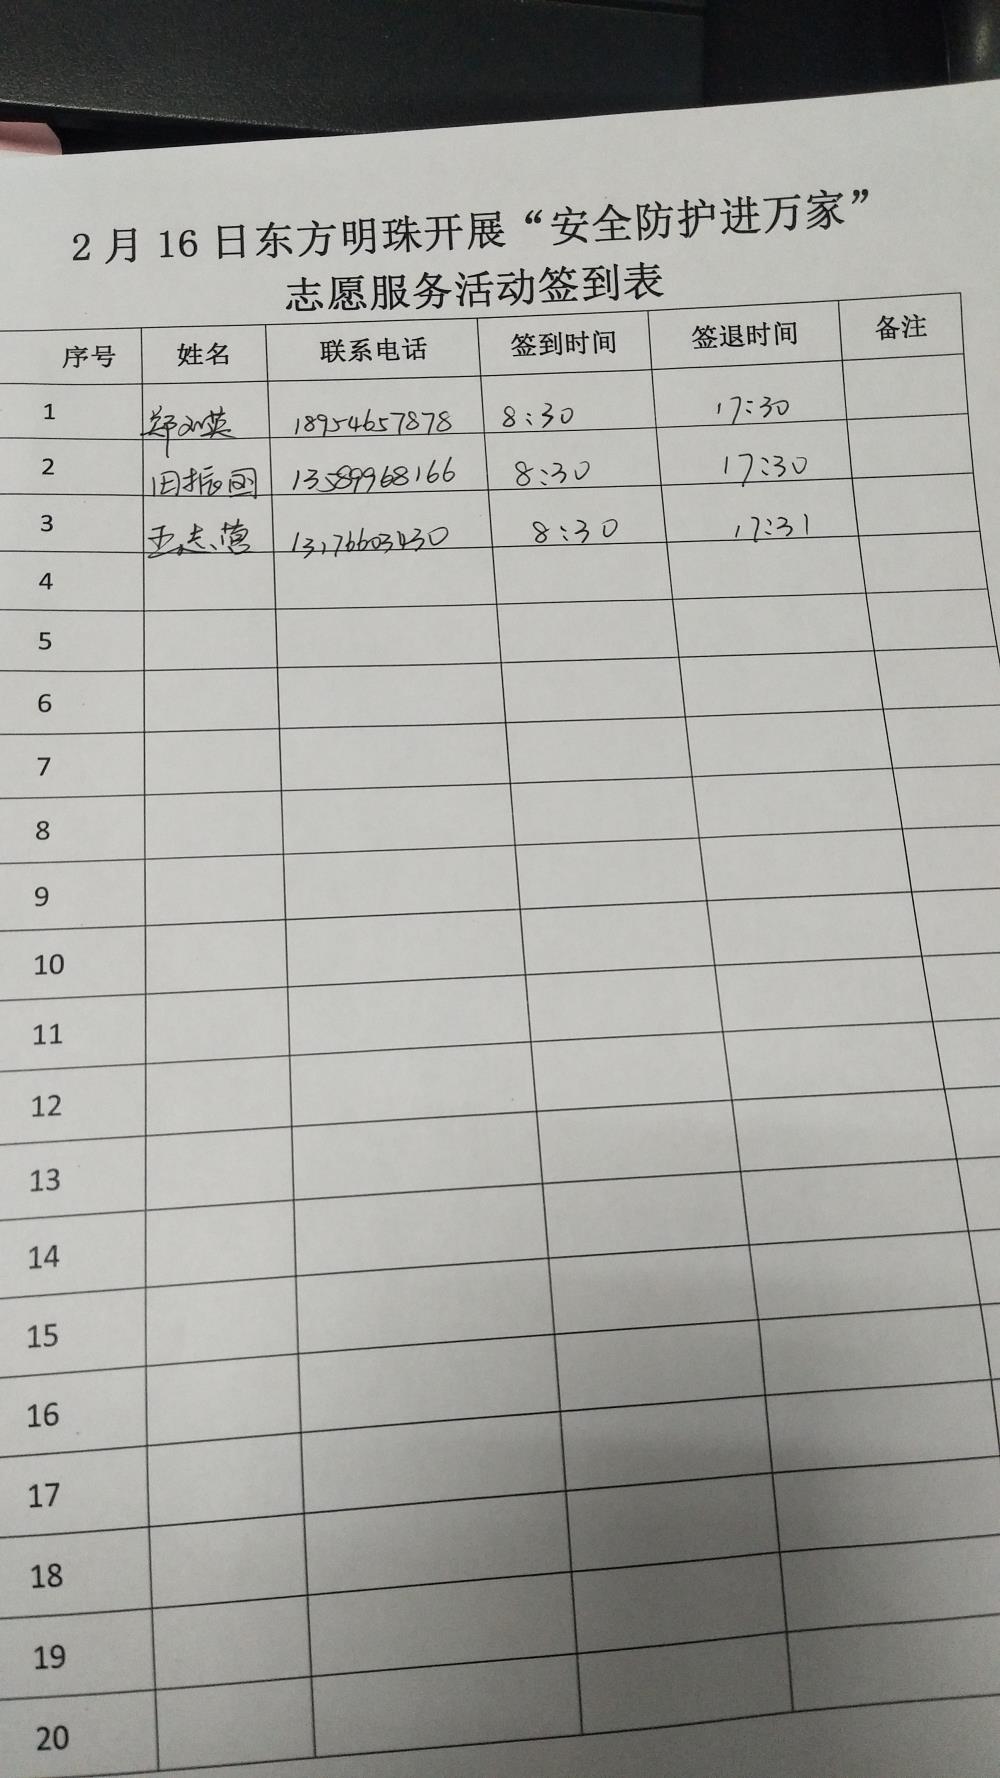 2月16日东方明珠开展“安全防护进万家”
志愿服务活动签到表
序号 姓名 联系电话 签到时间 签退时间 备注
1 郑 英 18954657878 8:30 17:30
2 田振国 13589968166 8:30 17:30
3 王志营 8:30 17:31
4
5
6
7
8
9
10
11
12
13
14
15
16
17
18
19
20